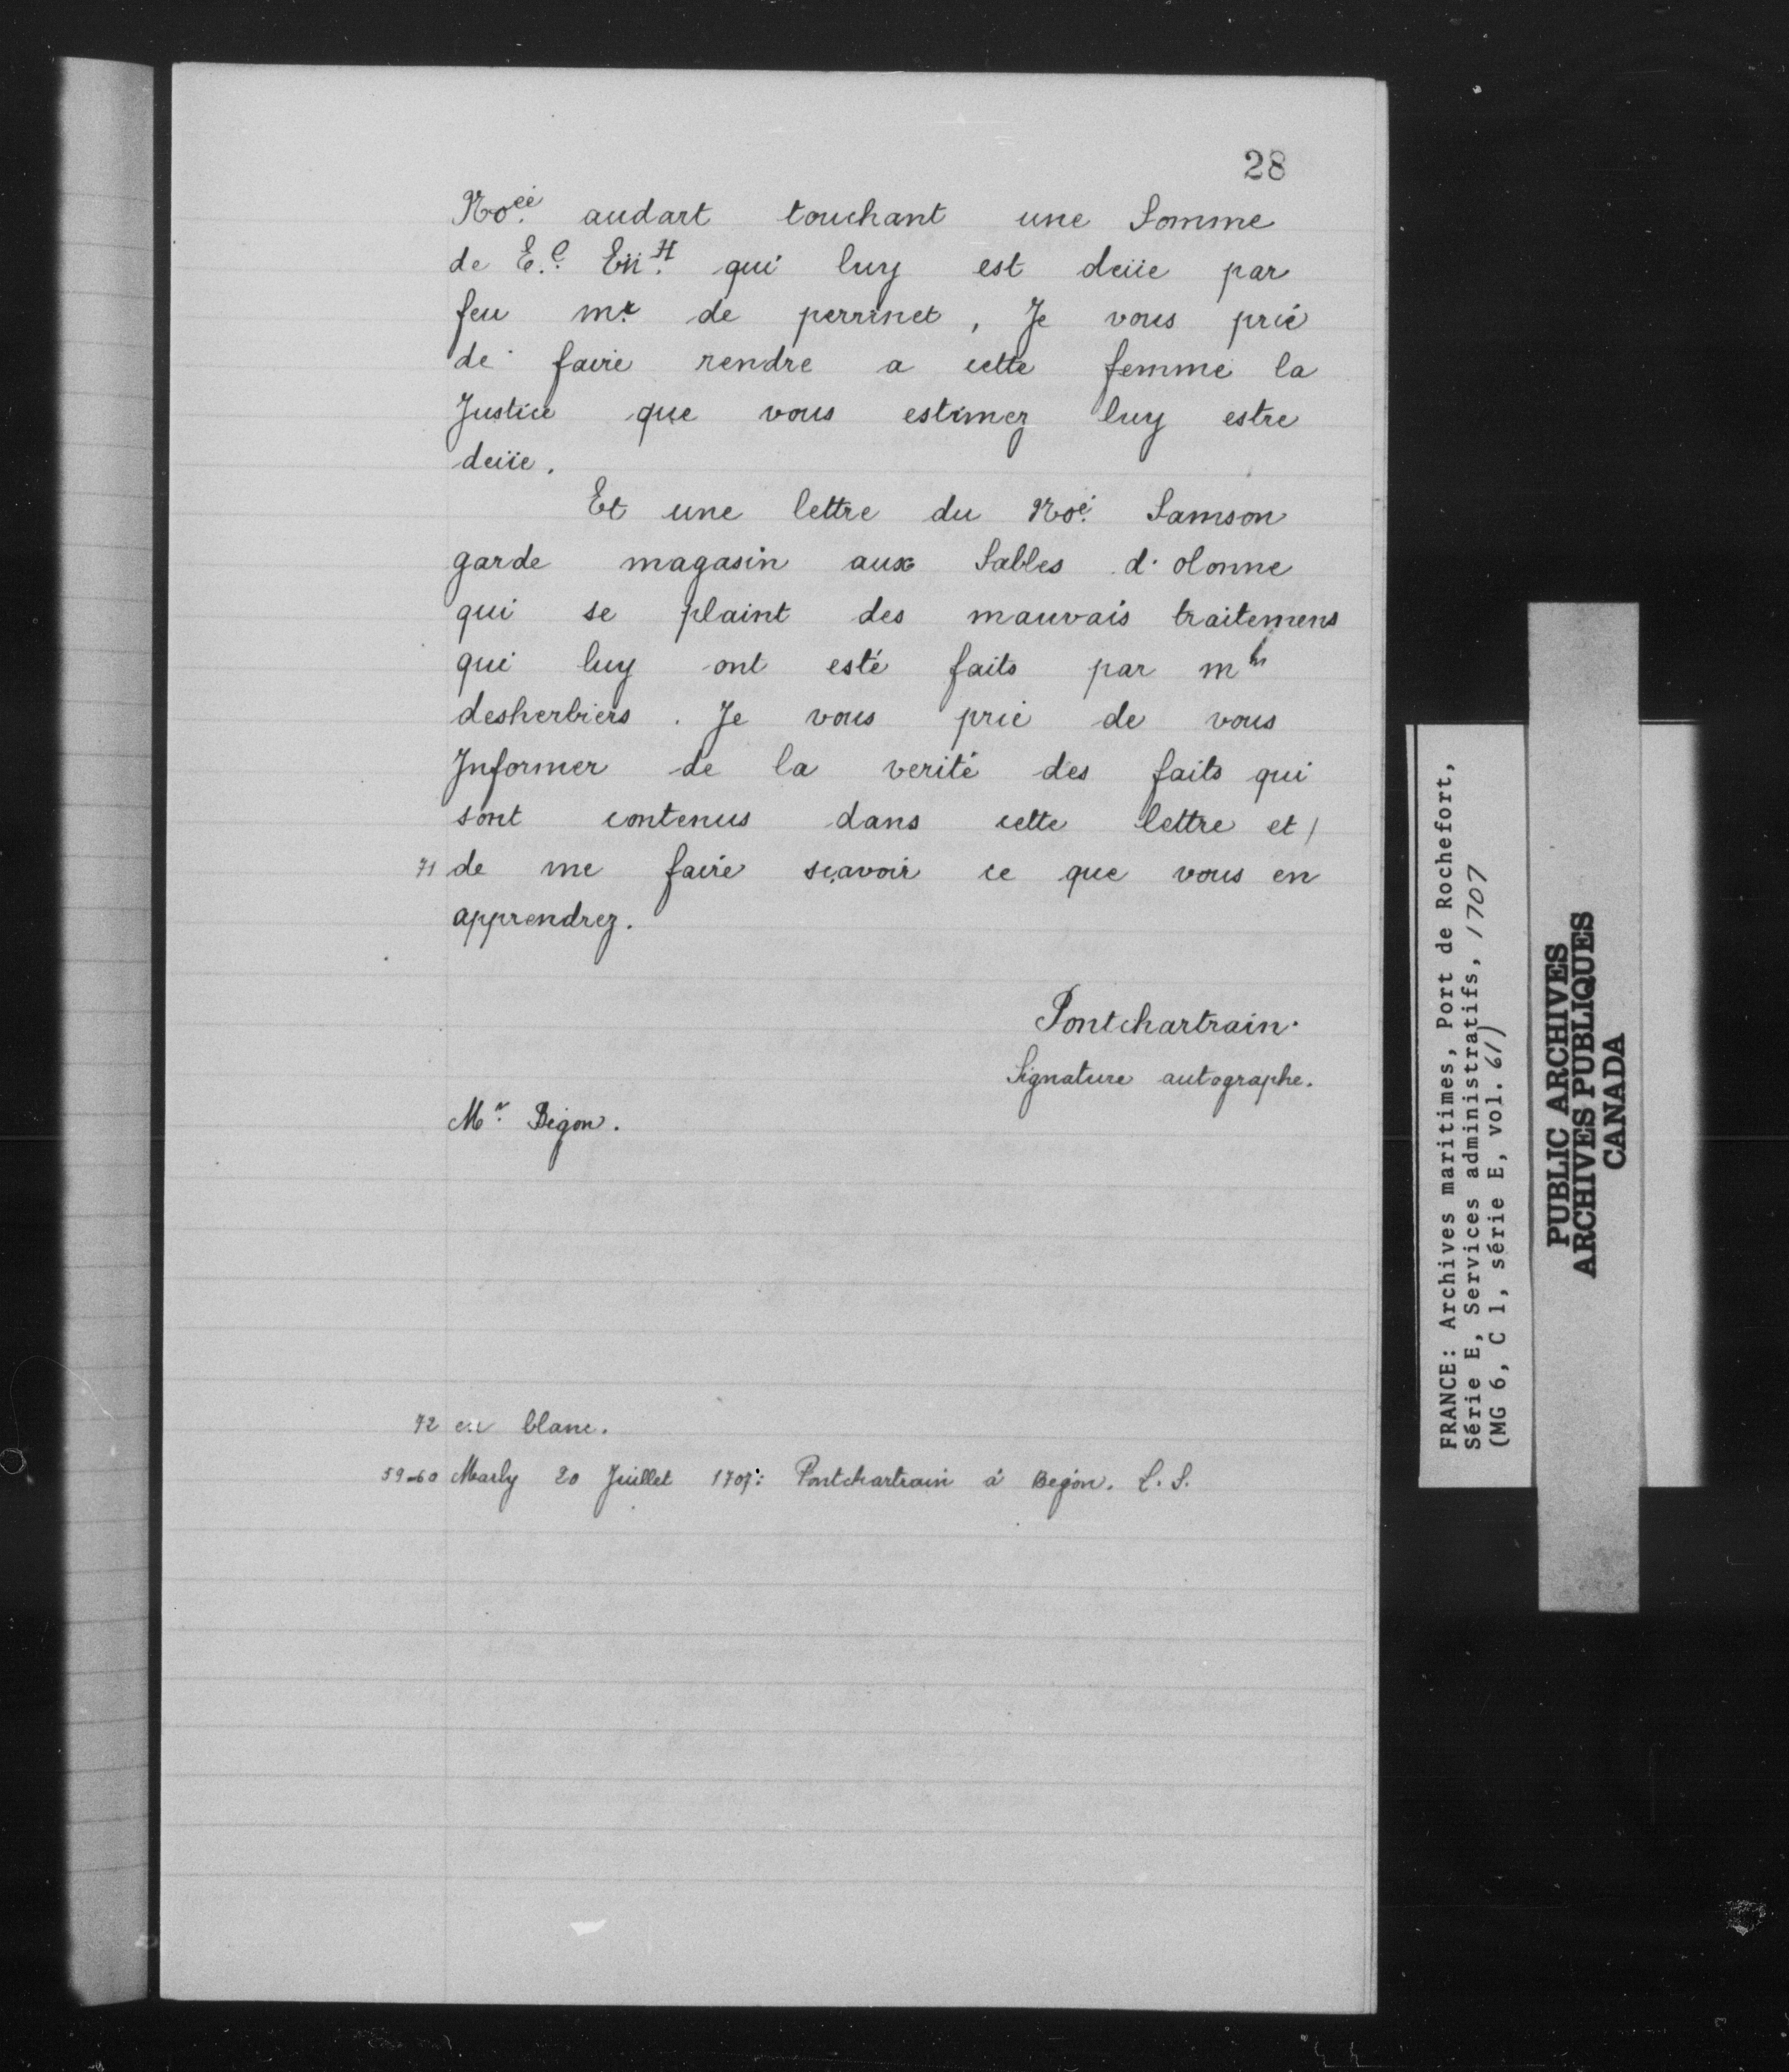 28
Noée audart touchant une Somme
de qui luy est deüe par
feu mr. de perrinet, Je vous prie
de faire rendre a cette femme la
Justice que vous estimez luy estre
deüe.
Et une lettre du Noé. Samson
garde magasin aux Sables d'olonne
qui se plaint des mauvais traitemens
qui luy ont esté faits par mr
desherbiers. Je vous prie de vous
Informer de la verité des faits qui
sont contenus dans cette lettre et/
71 de me faire sçavoir ce que vous en
apprendrez.
Pontchartrain.
Signature autographe.
Mr. Bégon.
72 en blanc.
59-60 Marly 20 Juillet 1707: Pontchartrain à Begon. L.S.
FRANCE: Archives maritimes, Port de Rochefort,
Série E, Services administratifs, 1707
(MG 6, C 1, série E, vol. 61)
PUBLIC ARCHIVES
ARCHIVES PUBLIQUES
CANADA